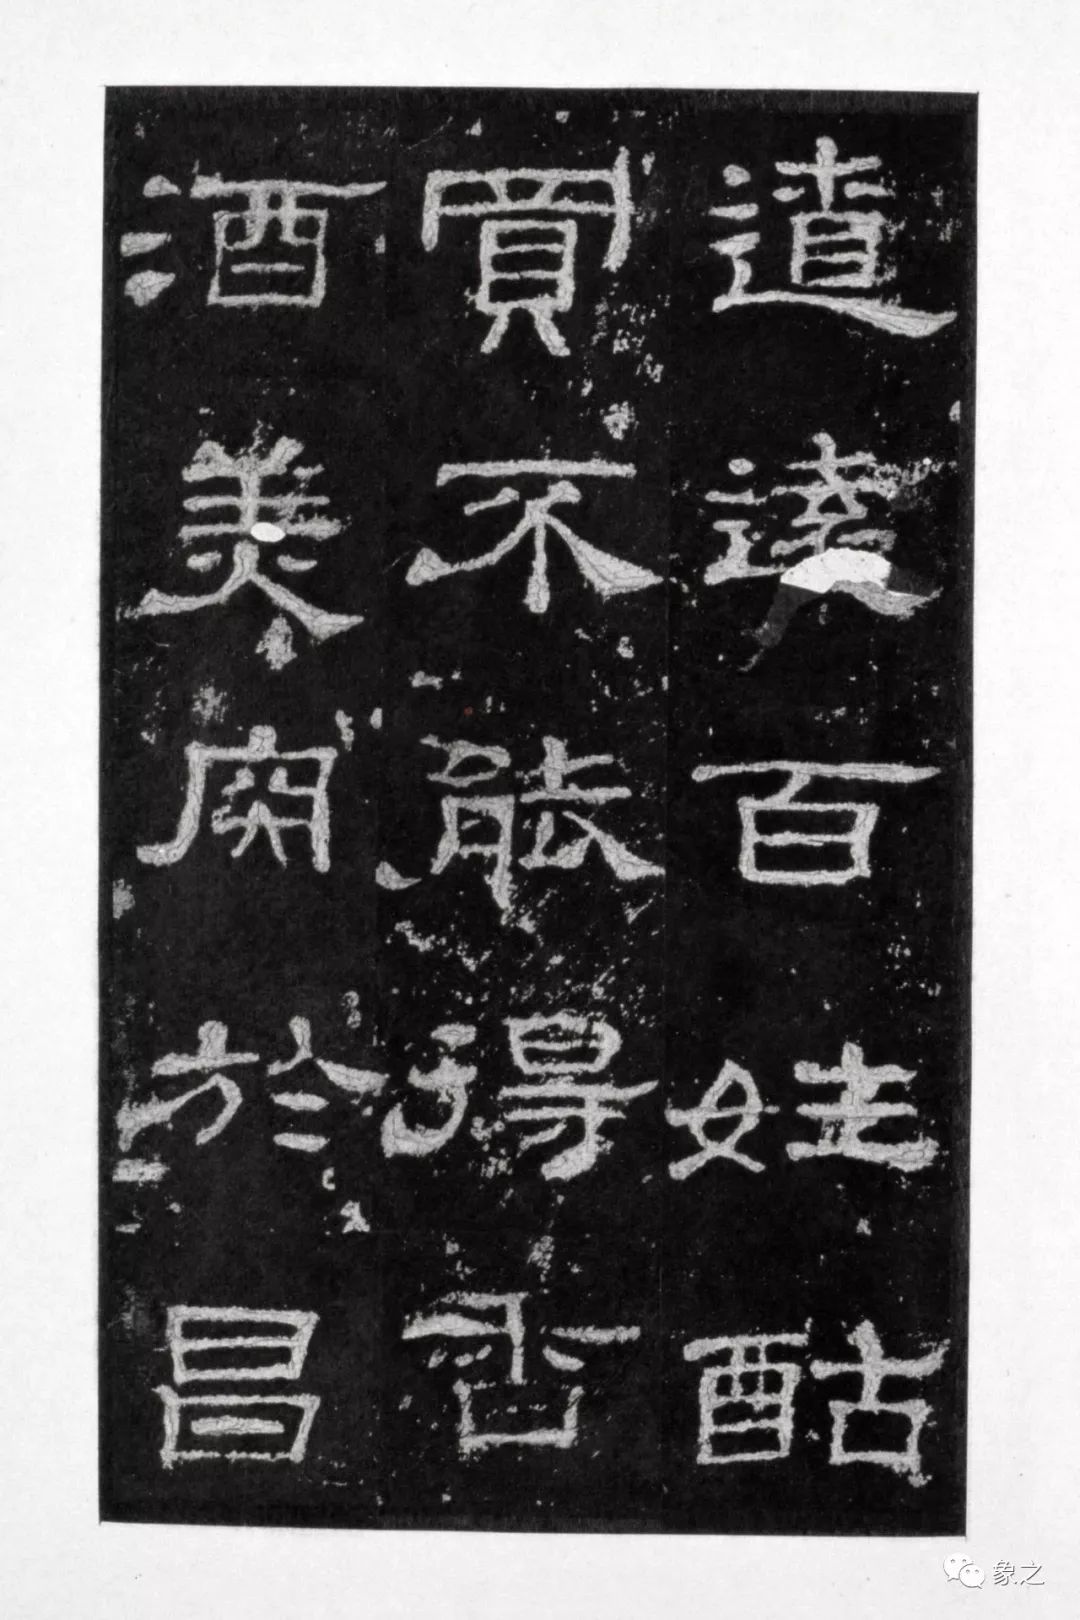 遼遠百姓酤
買不能得香
酒美肉於昌
象之